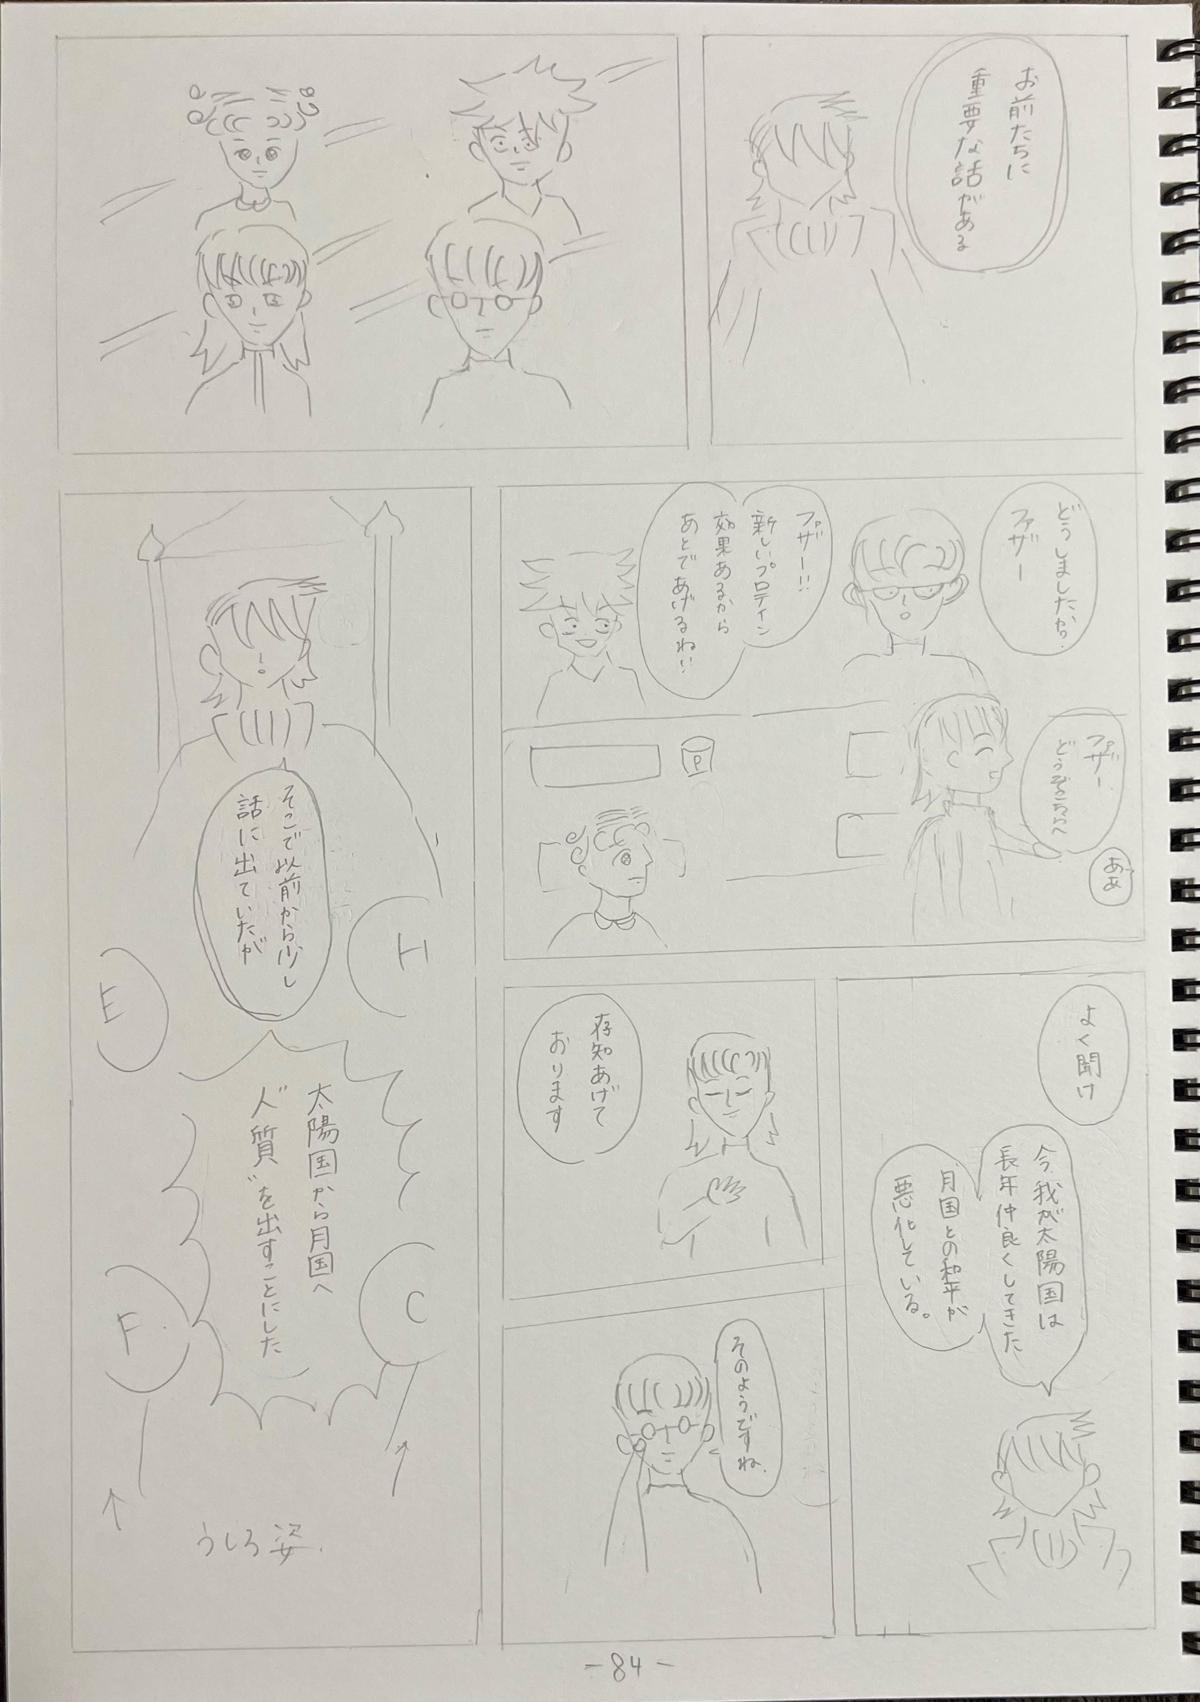 お前たちに
重要な話がある
どうしましたか。
ファザー
ファザー!!
新しいプロテイン
効果あるから
あとであげるね!!
ファザー
どうぞこちらへ
ああ
P
よく聞け
今、我が太陽国は
長年仲良くしてきた
月国との和平が
悪化している。
存知あげて
おります
そのようですね。
そこで以前から少し
話に出ていたが
H
E
太陽国から月国へ
“人質”を出すことにした
C
F
うしろ姿
-84-